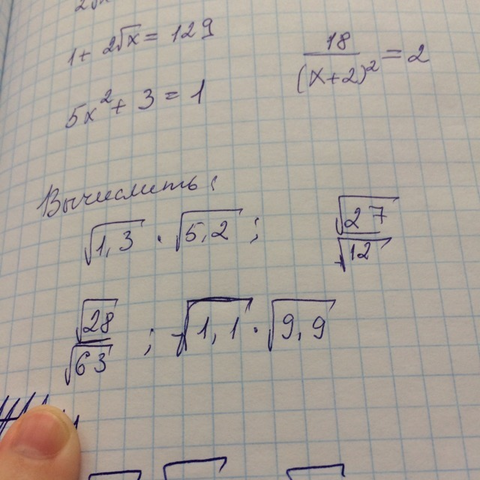 1 + 2√x = 129
18/(x+2)² = 2
5x² + 3 = 1
Вычислить:
√1,3 · √5,2 ; √27/√12
√28/√63 ; √1,1 · √9,9